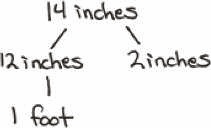 14 inches
12 inches 2 inches
1 foot